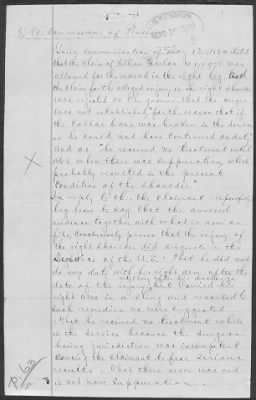 To The Commissioner of Pensions
Your communication of May
that the claim of William
allowed for the wound in the right leg, and
the claim for the alleged injury in the right shoulder
was rejected on the ground that the origin
was not established, for the reason that if
the collar bone was broken in the service
he could not have continued on duty,
and as "He received no treatment until
1868 when there was suppuration, which
probably resulted in the present
condition of the shoulder."
In reply to this the claimant respectfully
begs leave to say that the
evidence together with what is now on
file, conclusively proves that the injury of
the right shoulder did originate in the
Service of the U.S. That he did not
do any duty with his right arm after the
date of the injury, but carried his
right arm in a sling and resorted to
such remedies as were suggested
That he received no treatment while
in the service because the surgeon
having jurisdiction was incompetent
causing the claimant to fear serious
results. That there never was and
is not now suppuration